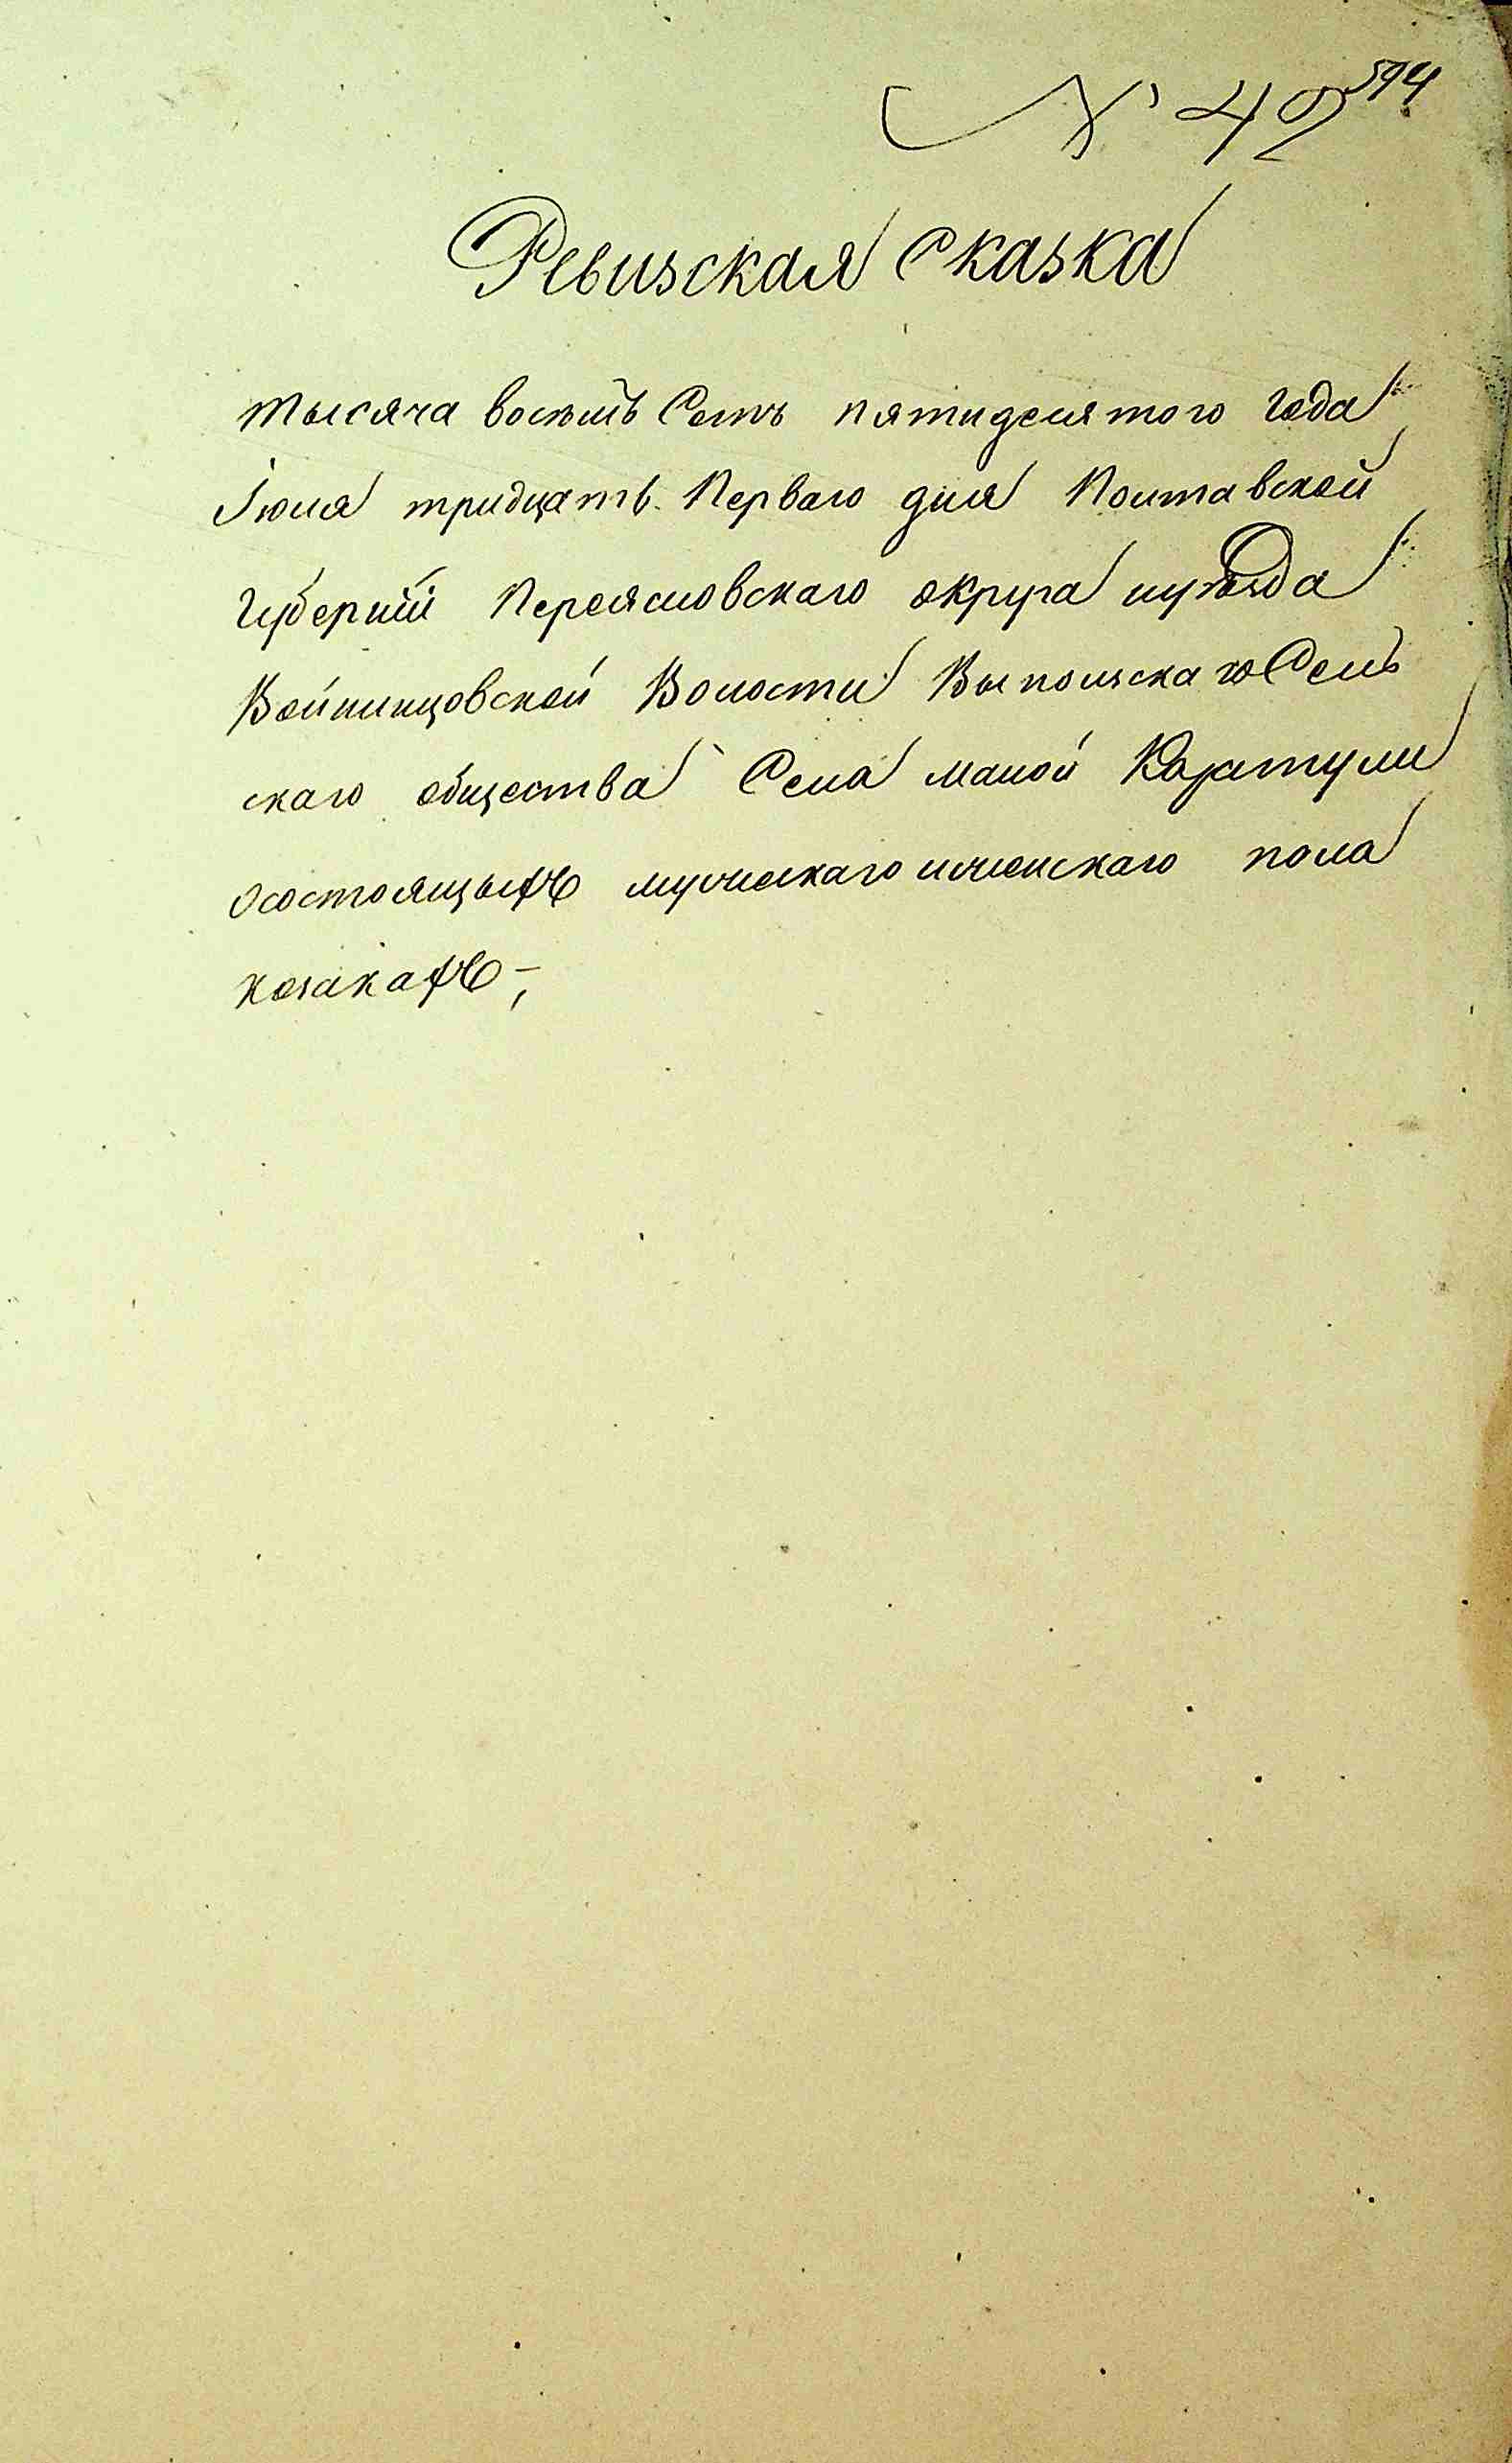 № 42 594
Ревизская Сказка
тысяча восемь Сотъ пятидесятого года
Іюля тридцать Перваго дня Полтавской
Губерніи Переясловскаго округа иуѣзда
Войнинцовской Волости Выползскаго Сель
скаго общества Села малой Каратули
Осостоящыхъ мужескаго иженскаго пола
козакахъ-,